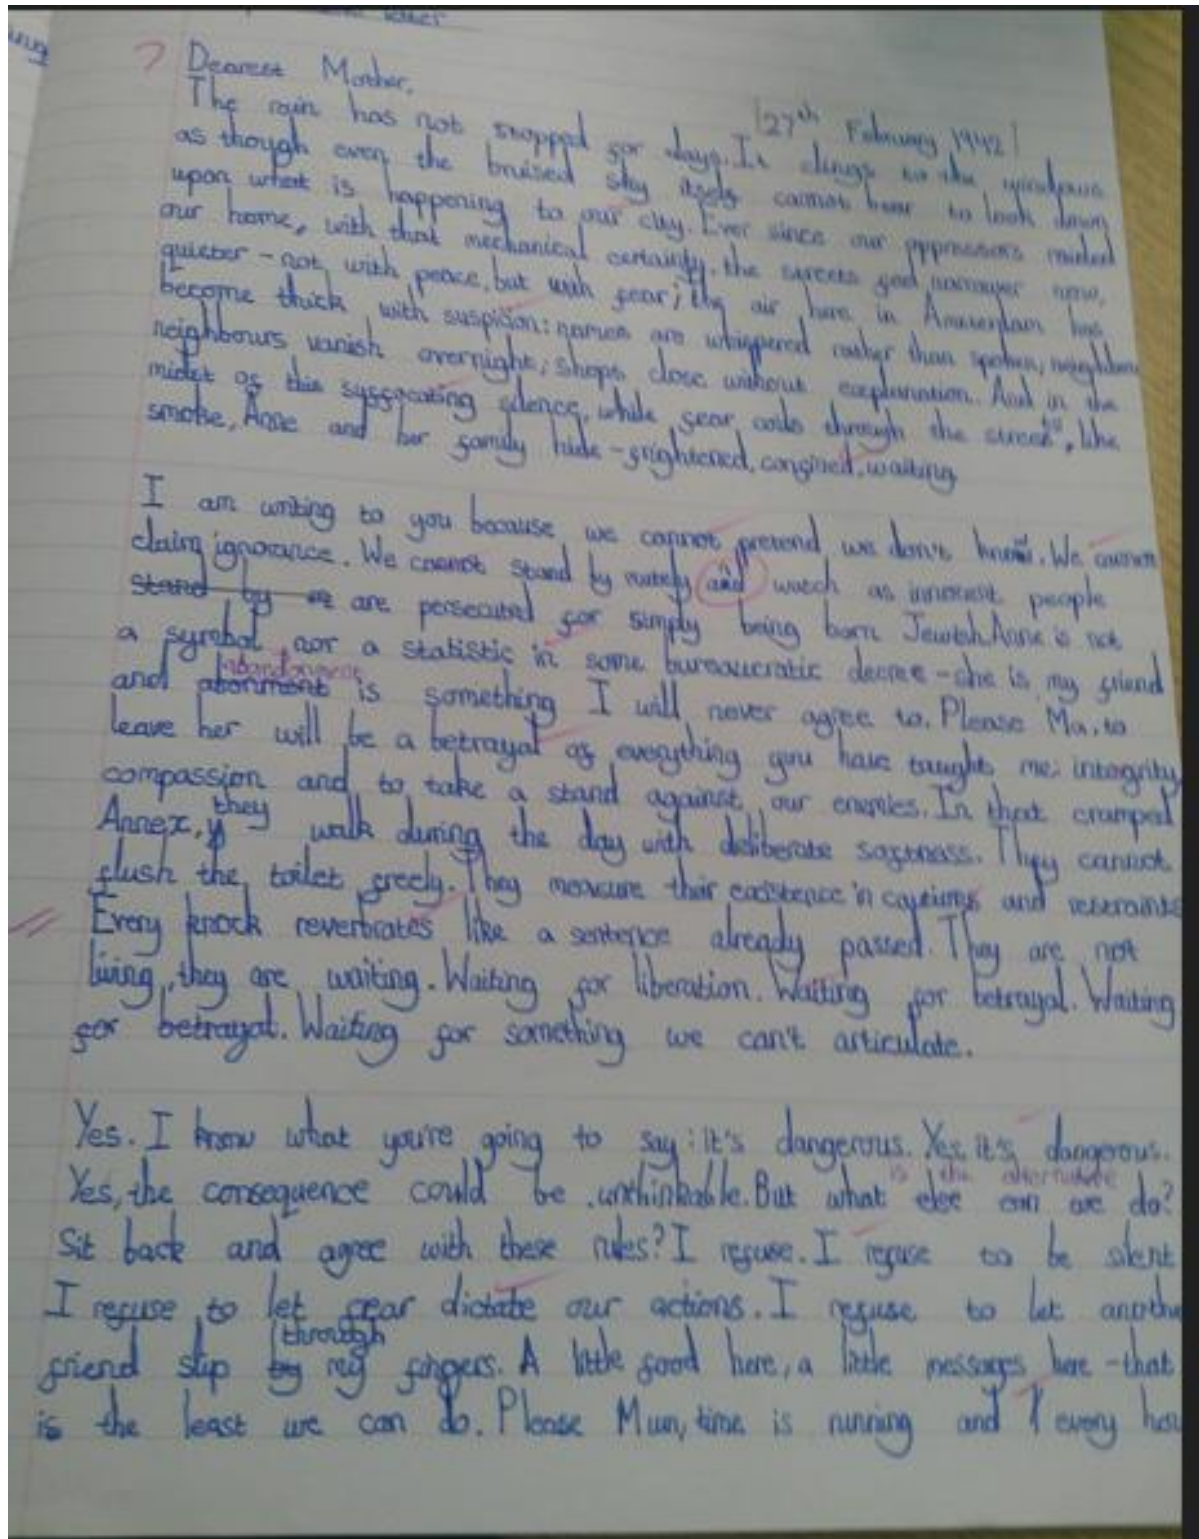 letter
Dearest Mother,
|27th February 1942|
The rain has not stopped for days. It clings to the windows
as though even the bruised sky itself cannot bear to look down
upon what is happening to our city. Ever since our oppressors raided
our home, with that mechanical certainty, the streets feel narrower now,
quieter - not with peace, but with fear; the air here in Amsterdam has
become thick with suspicion: names are whispered rather than spoken, neighbou
neighbours vanish overnight; shops close without explanation. And in the
midst of this suffocating silence, while fear coils through the streets, like
smoke, Anne and her family hide - frightened, confined, waiting
I am writing to you because we cannot pretend we don't know. We cannot
claim ignorance. We cannot stand by mutely and watch as innocent people
stand by are persecuted for simply being born Jewish. Anne is not
a symbol nor a statistic in some bureaucratic decree - she is my friend
abandonment
and abonment is something I will never agree to. Please Ma, to
leave her will be a betrayal of everything you have taught me: integrity,
compassion and to take a stand against our enemies. In that cramped
Annex, they walk during the day with deliberate softness. They cannot
flush the toilet freely. They measure their existence in captions and restraints
Every knock reverbrates like a sentence already passed. They are not
living, they are waiting. Waiting for liberation. Waiting for betrayal. Waiting
for betrayal. Waiting for something we can't articulate.
Yes. I know what you're going to say: it's dangerous. Yes, it's dangerous.
is the alternate
Yes, the consequence could be unthinkable. But what else can we do?
Sit back and agree with these rules? I refuse. I refuse to be silent
I refuse to let fear dictate our actions. I refuse to let anothe
through
friend slip by my fingers. A little food here, a little messages here - that
is the least we can do. Please Mum, time is running and every hou